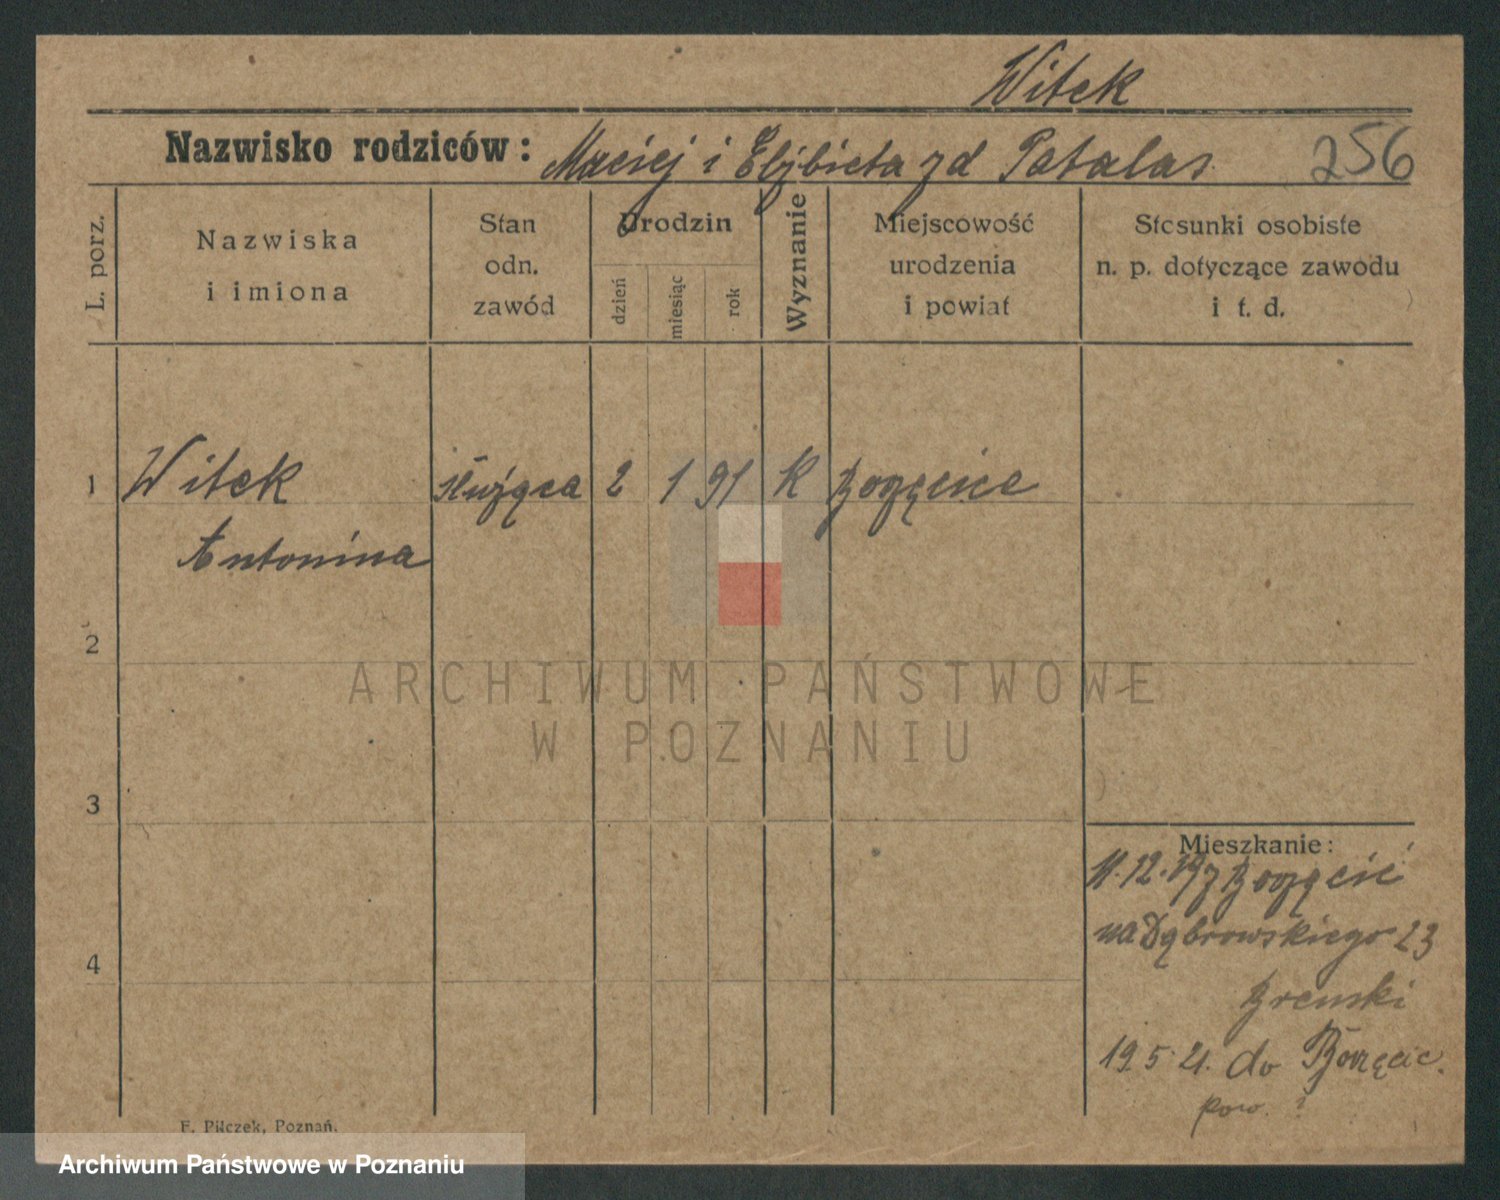 Witek
Nazwisko rodziców: Maciej i Elżbieta zd Patalas 256
L. porz.
Nazwiska
i imiona
Stan
odn.
zawód
Urodzin
dzień
miesiąc
rok
Wyznanie
Miejscowość
urodzenia
i powiat
Stosunki osobiste
n. p. dotyczące zawodu
i t. d.
1 Witek służąca 2 1 91 K Borzęcice
Antonina
2
3
4
Mieszkanie:
11.12.19 z Borzęcic
na Dąbrowskiego 23
19.5.21. do Borzęcic.
pow. ?
F. Pilczek, Poznań.
ARCHIWUM PAŃSTWOWE
W POZNANIU
Archiwum Państwowe w Poznaniu